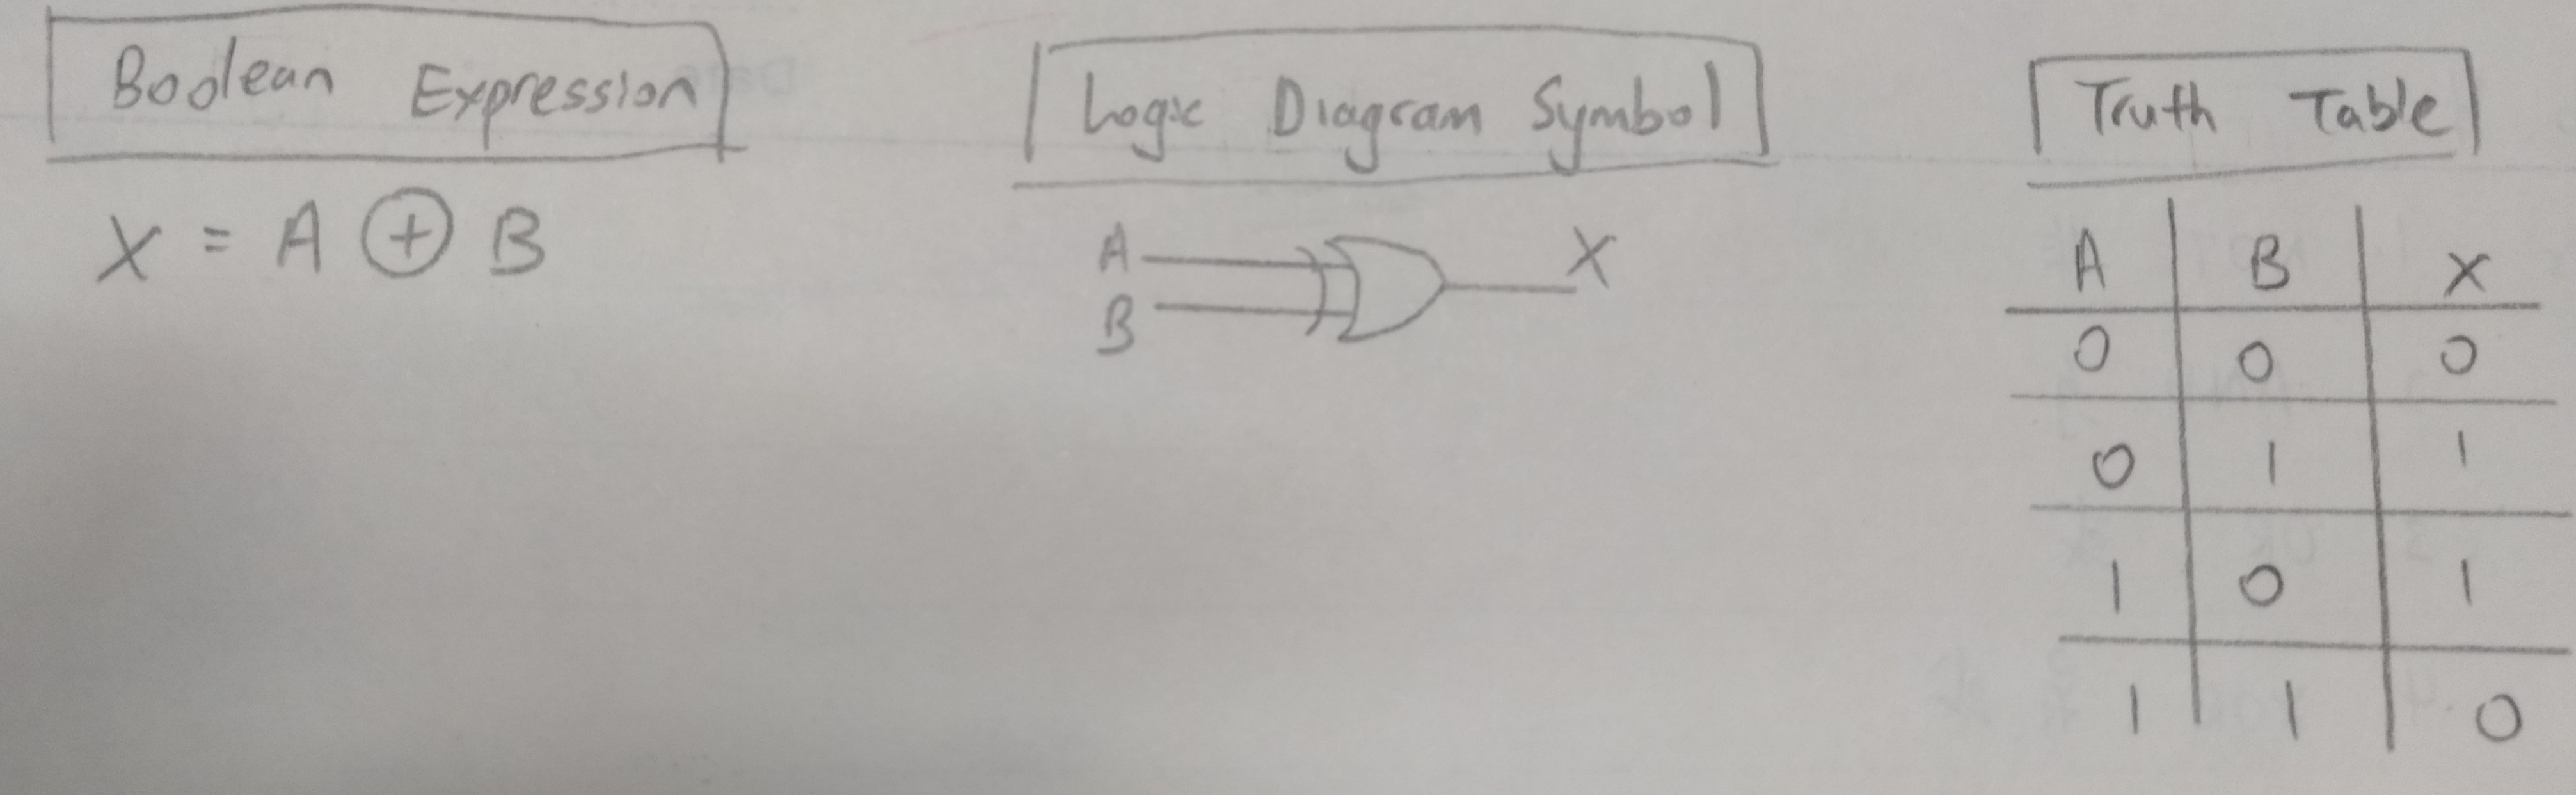 Boolean Expression
X = A ⊕ B
Logic Diagram Symbol
A
B
X
Truth Table
A B X
0 0 0
0 1 1
1 0 1
1 1 0